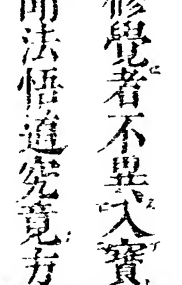 修覺者不異入寶
師法悟道究竟方